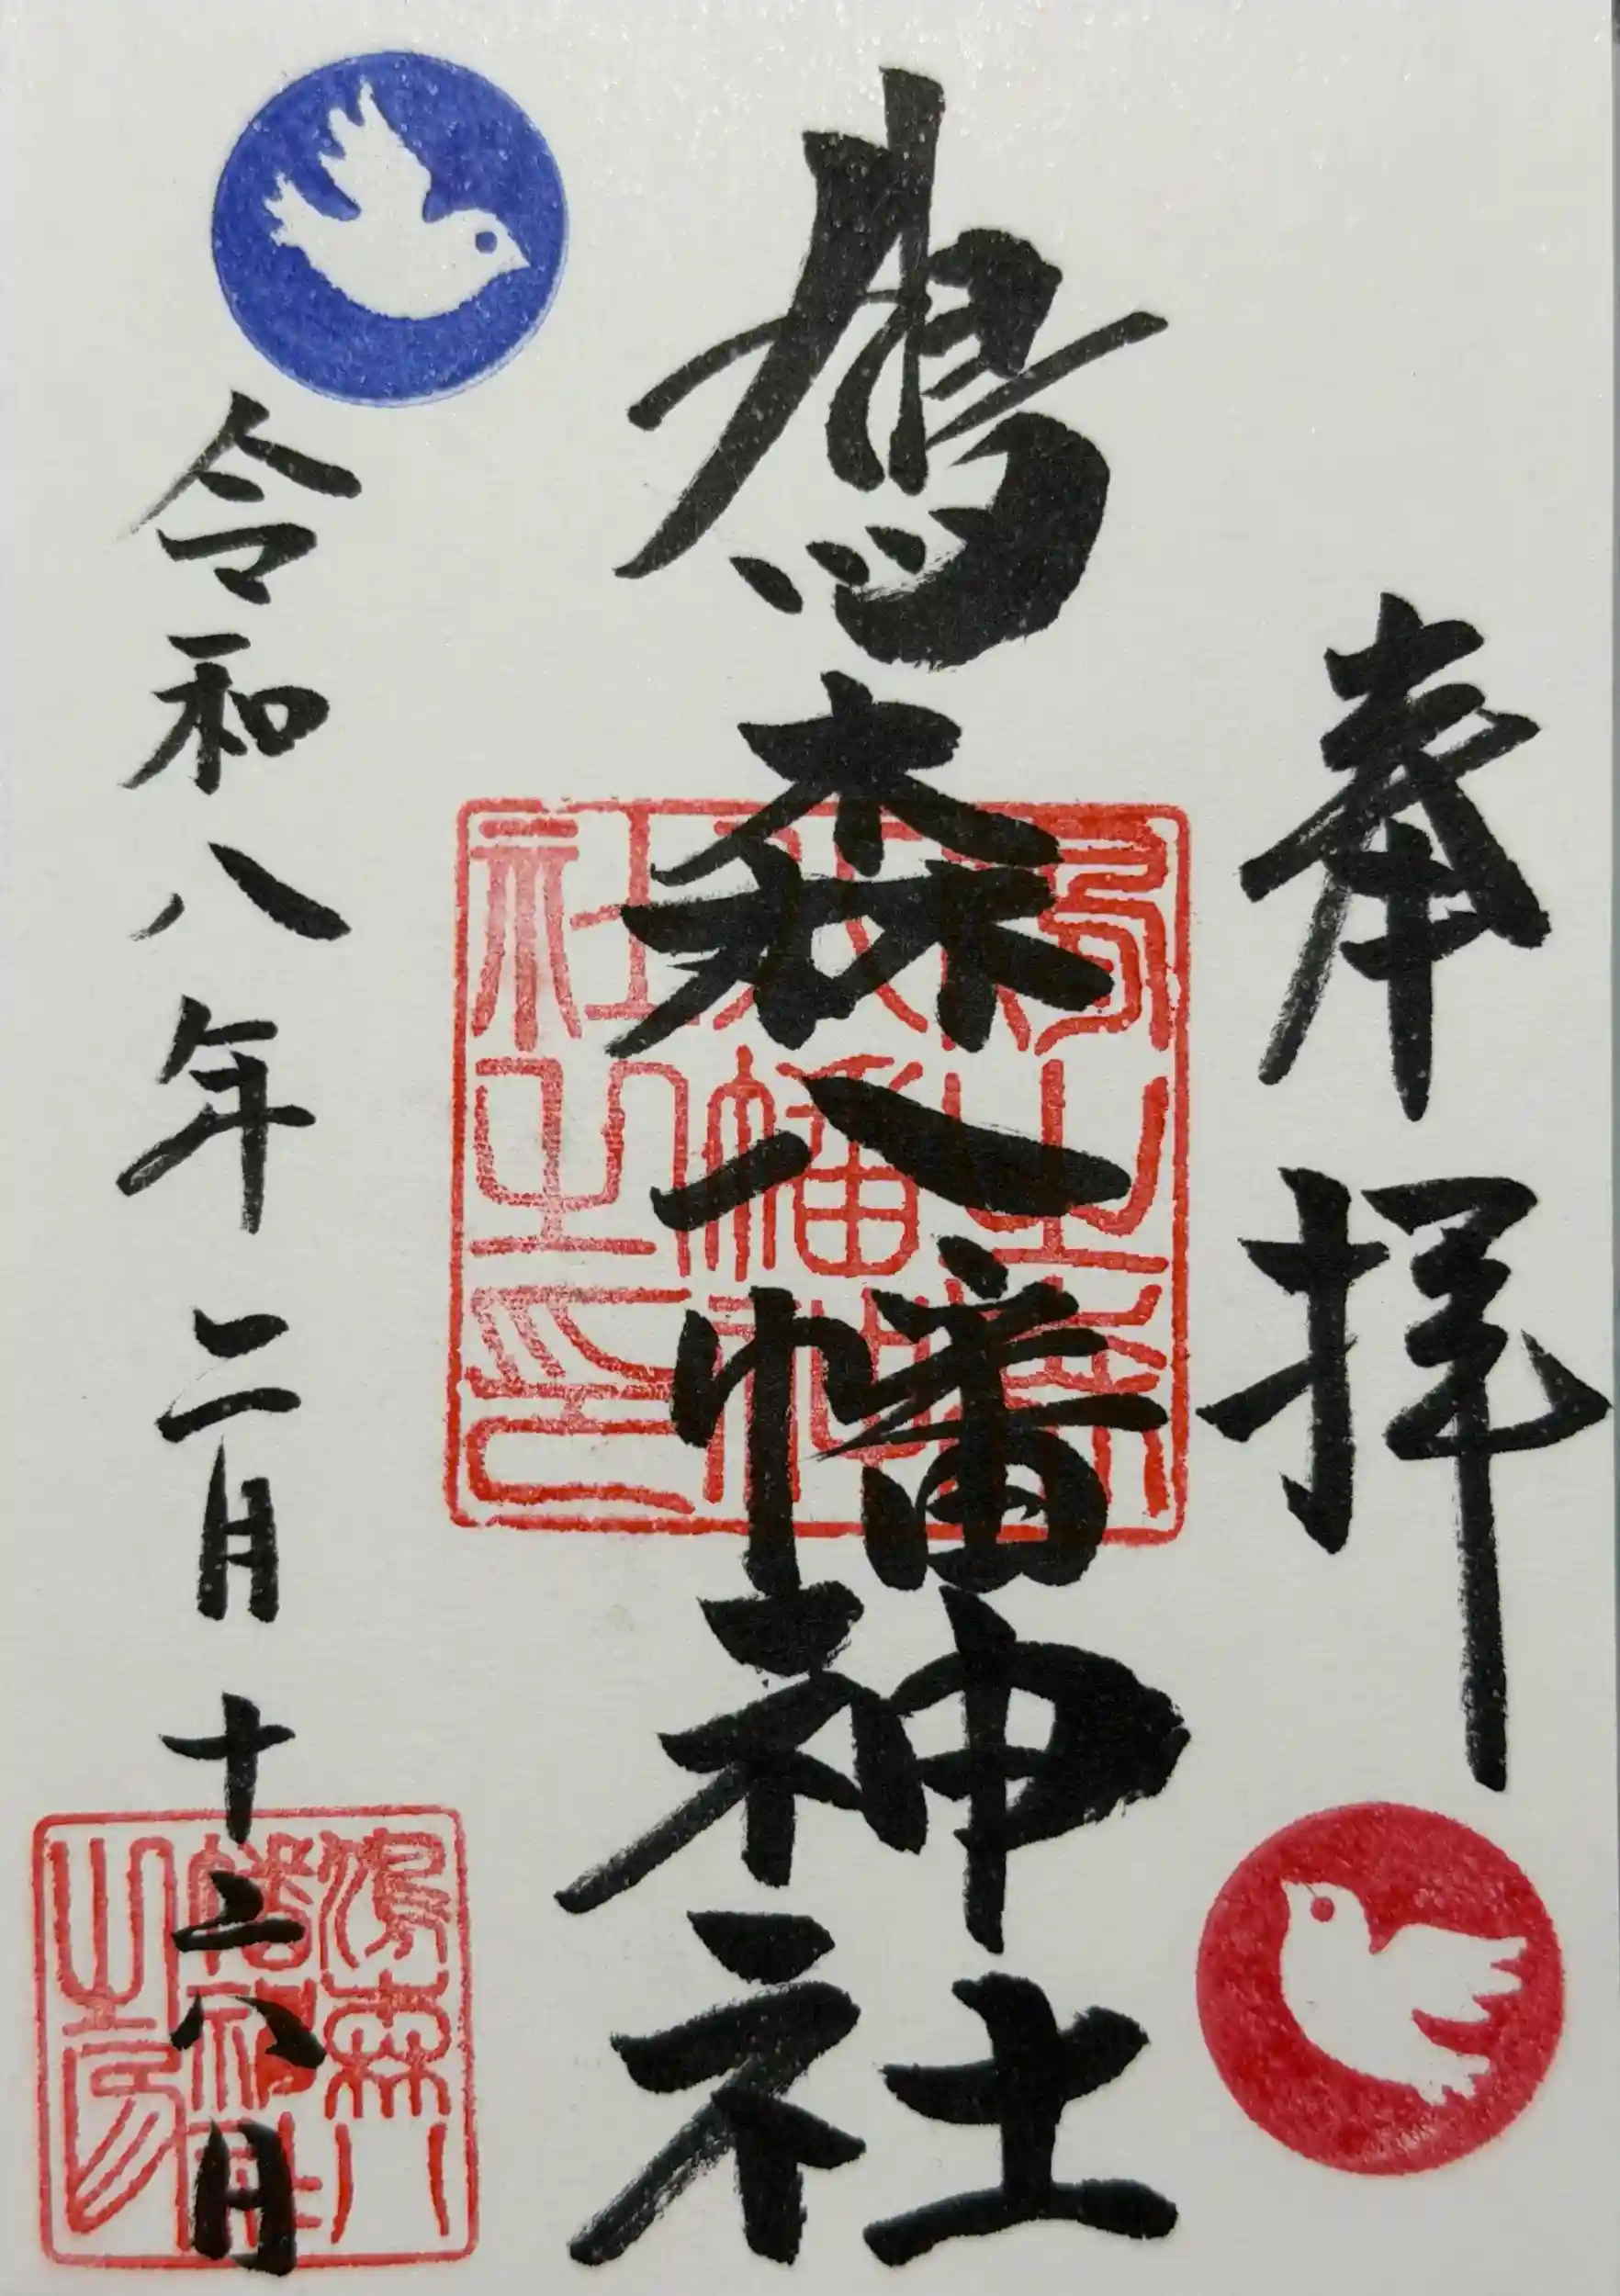 奉拝
鳩森八幡神社
令和八年二月十六日
鳩之森
八幡神
社之印
鳩森八
幡神社